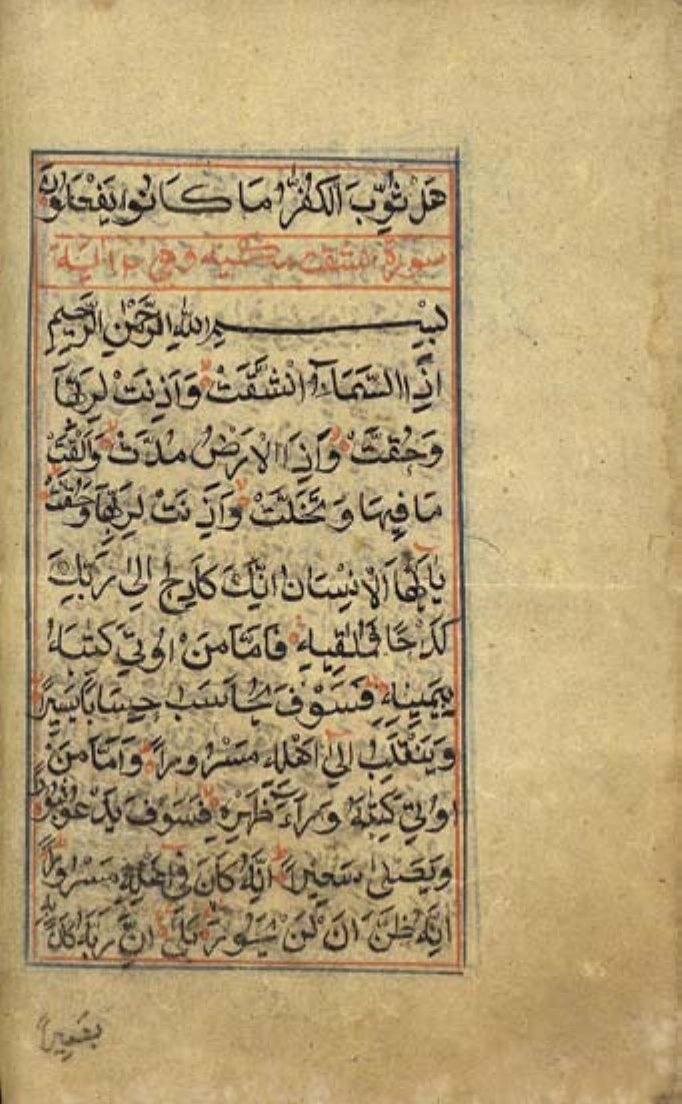 هَلْ ثُوِّبَ الْكُفَّرُ مَا كَانُوا يَفْعَلُونَ
سورة انشقت مكية وهي اية
بِسْمِ اللهِ الرَّحْمٰنِ الرَّحِيمِ
اِذَا السَّمَاءُ انْشَقَّتْ وَاَذِنَتْ لِرَبِّهَا
وَحُقَّتْ وَاِذَا الْاَرْضُ مُدَّتْ وَاَلْقَتْ
مَا فِيهَا وَتَخَلَّتْ وَاَذِنَتْ لِرَبِّهَا وَحُقَّتْ
يَااَيُّهَا الْاِنْسَانُ اِنَّكَ كَادِحٌ اِلٰى رَبِّكَ
كَدْحًا فَمُلٰقِيهِ فَاَمَّا مَنْ اُوتِيَ كِتٰبَهُ
بِيَمِينِهِ فَسَوْفَ يُحَاسَبُ حِسَابًا يَسِيرًا
وَيَنْقَلِبُ اِلٰى اَهْلِهِ مَسْرُورًا وَاَمَّا مَنْ
اُوتِيَ كِتٰبَهُ وَرَاءَ ظَهْرِهِ فَسَوْفَ يَدْعُو ثُبُورًا
وَيَصْلٰى سَعِيرًا اِنَّهُ كَانَ فِي اَهْلِهِ مَسْرُورًا
اِنَّهُ ظَنَّ اَنْ لَنْ يَحُورَ بَلٰى اِنَّ رَبَّهُ كَانَ بِهِ
بَصِيرًا